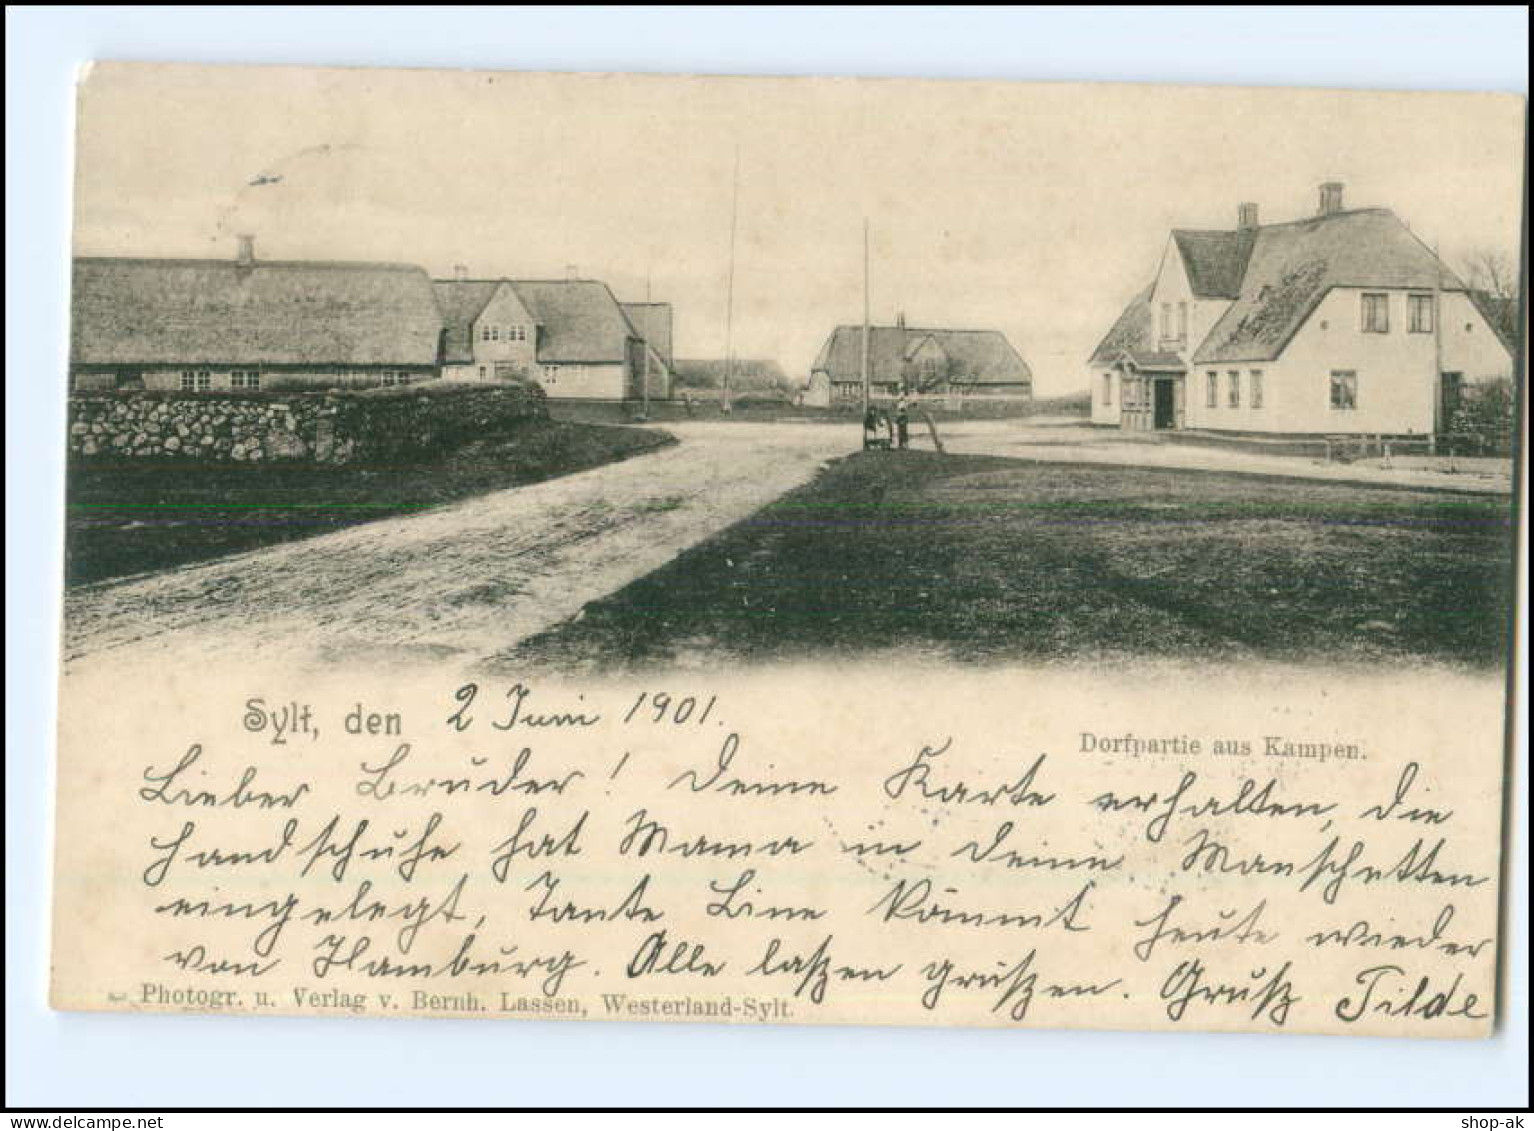 Sylt, den 2 Juni 1901.
Dorfpartie aus Kampen.
Lieber Bruder! Deine Karte erhalten, die
Handschuhe hat Mama in deine Manschetten
eingelegt, Tante Line kömmt heute wieder
von Hamburg. Alle laßen grüßen. Gruß Tilde
Photogr. u. Verlag v. Bernh. Lassen, Westerland-Sylt.
shop-ak